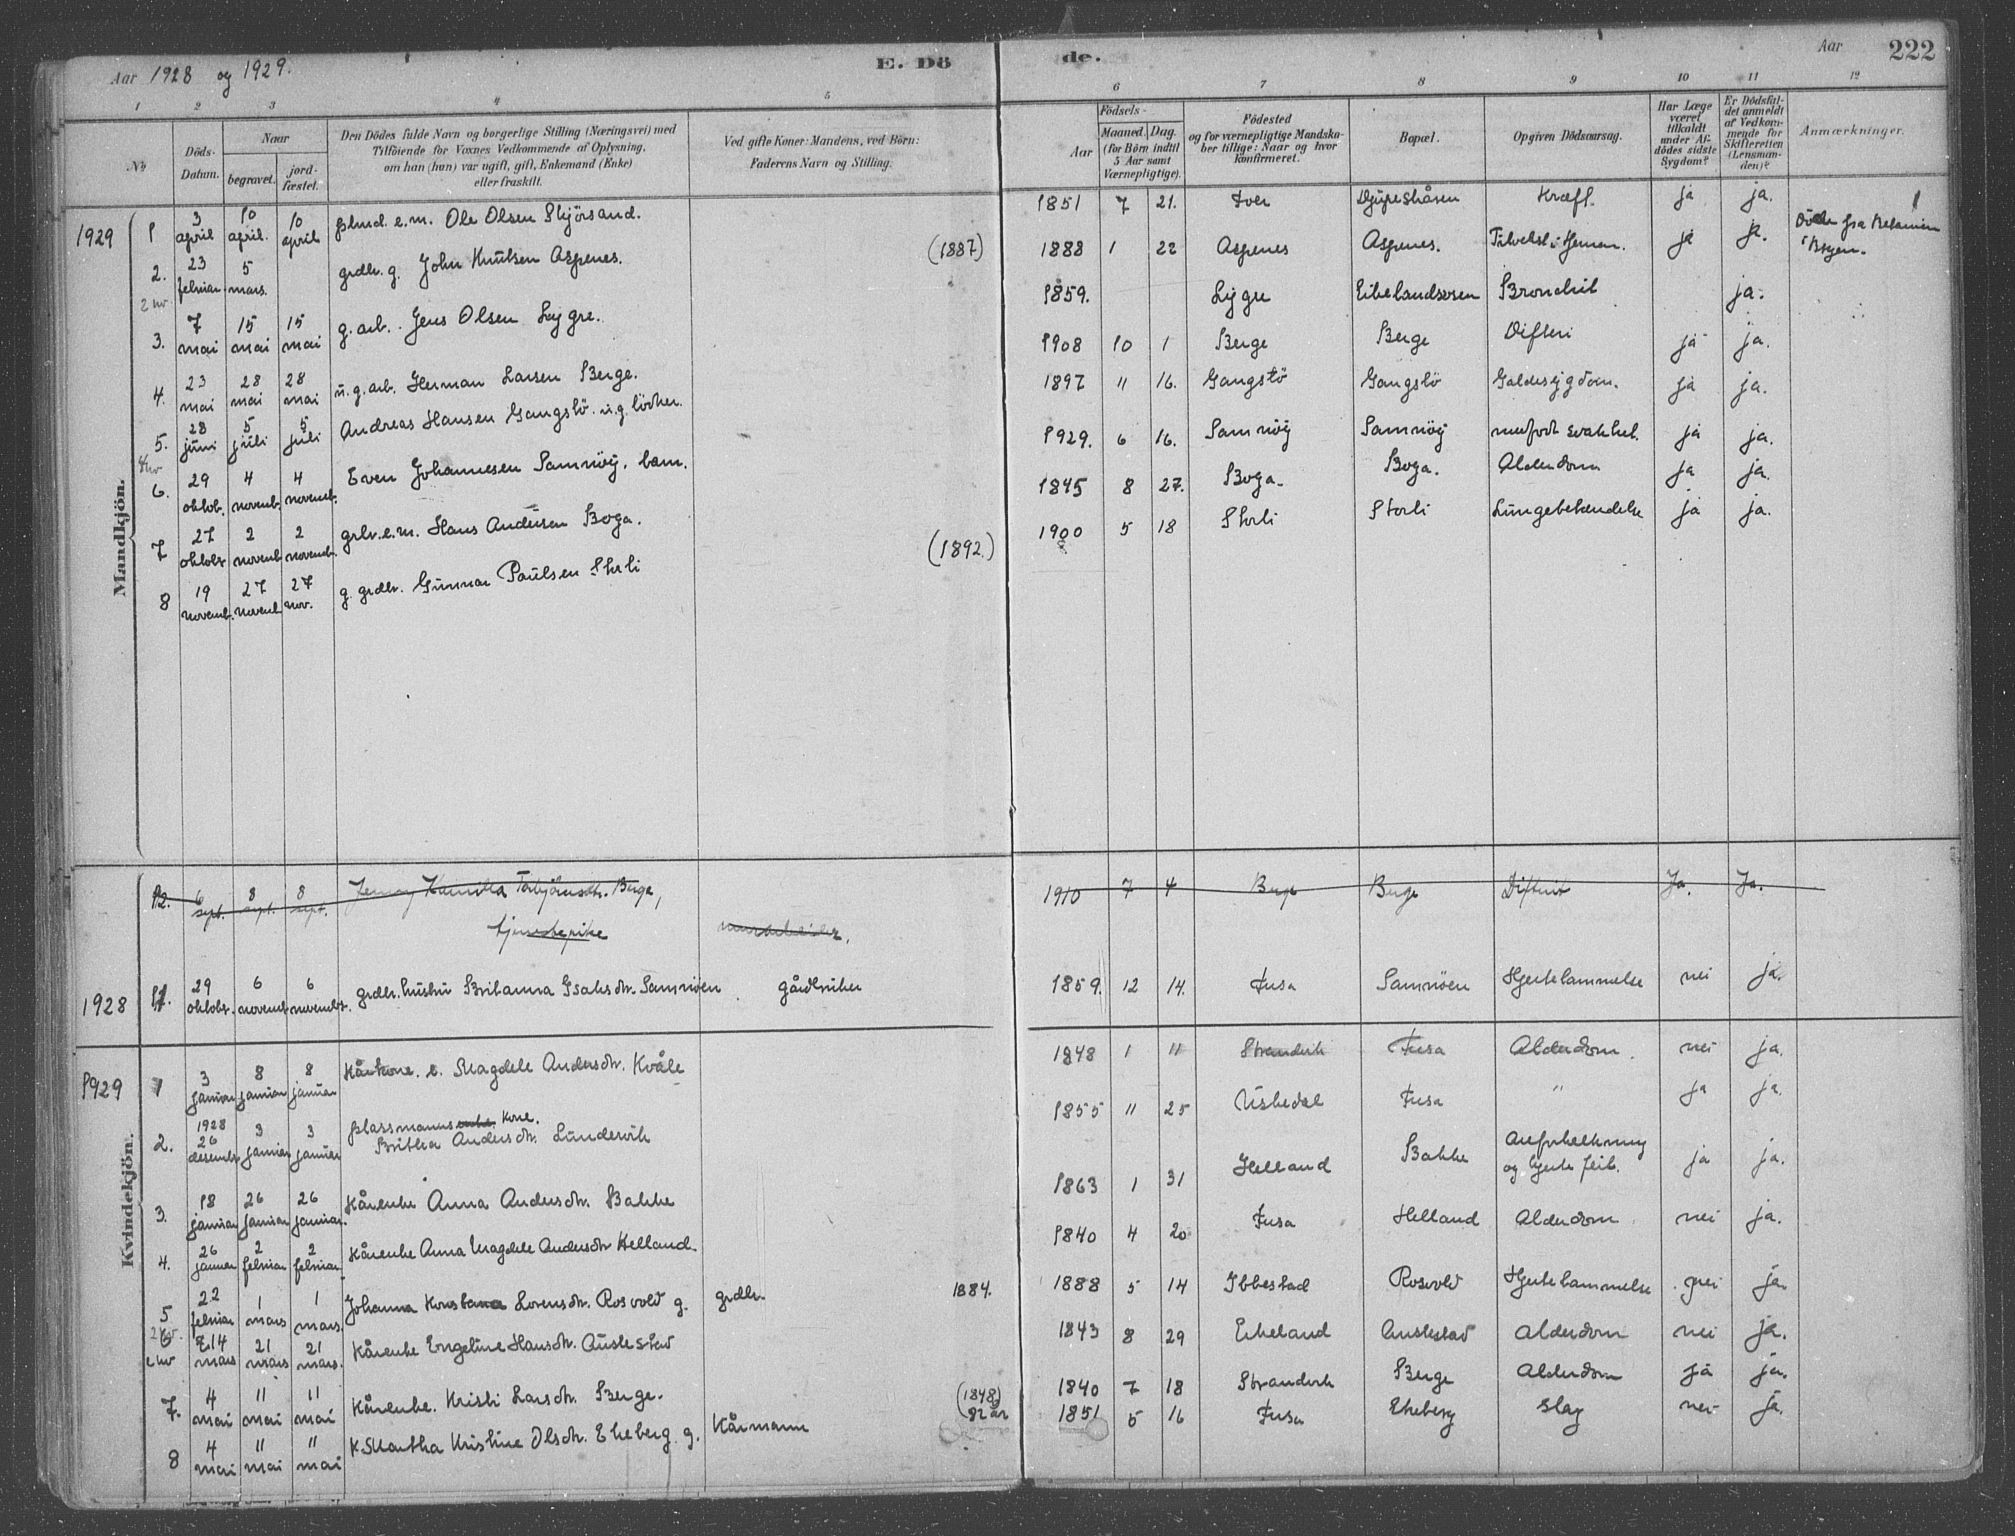 Aar 1928 og 1929.
E. Dö
de.
Aar
222
1 2 3 4 5
6 7 8 9 10 11 12
No
Döds-Datum.
Naar
begravet.
jord-fæstet.
Den Dödes fulde Navn og borgerlige Stilling (Næringsvei) med
Tilföiende for Voxnes Vedkommende af Oplysning,
om han (hun) var ugift, gift, Enkemand (Enke)
eller fraskilt.
Ved gifte Koner: Mandens, ved Börn:
Faderens Navn og Stilling.
Födsels-
Aar
Maaned. Dag.
(for Börn indtil
5 Aar samt
Værnepligtige).
Födested
og for værnepligtige Mandska-
ber tillige: Naar og hvor
konfirmeret.
Bopæl.
Opgiven Dödsaarsag.
Har Læge
været
tilkaldt
under Af-
dödes sidste
Sygdom?
Er Dödsfal-
det anmeldt
af Vedkom-
mende for
Skifteretten
(Lensman-
den)?
Anmærkninger.
Mandkjön.
1929 1 3 april 10 april. 10 april e.m. Ole Olsen Skjörsand. 1851 7 21. ja ja.
2. 23 februar 5 mars. grdbr. g. John Knutsen Aspenes. (1887) 1888 1 22 Aspenes Aspenes. ja ja.
3. 7 mai 15 mai 15 mai g. arb. Jens Olsen Lygre. 1859. Lygre Eikelandsosen Bronchit ja.
4. 23 mai 28 mai 28 mai u. g. arb. Herman Larsen Berge. 1908 10 1 Berge Berge Difteri ja ja.
5. 28 juni 5 juli 5 juli Andreas Hansen Gangstö. u. g. 1897 11 16. Gangstö Gangstö Galdesygdom. ja ja.
6. 29 oktob. 4 novemb. 4 novemb. Even Johannesen Samnöy. barn. 1929. 6 16. Samnöy Samnöy medfödt svakhet. ja ja.
7 27 oktobr 2 novemb. 2 novemb. e.m. Hans Andersen Boga. (1892.) 1845 8 27. Boga. Boga. Alderdom ja ja.
8 19 novemb. 27 novemb. 27 nov. g. grdbr. Gunnar Paulsen Storli 1900 5 18 Storli Storli Lungebetændelse ja ja.
Kvindekjön.
12. 6 sept. 8 sept. 8 sept. Jenny Kamilla Torbjörnsdtr. Berge, 1910 7 4 Berge Berge Difterit Ja. Ja.
tjenestepike
1928 11. 29 oktobr. 6 novemb. 6 novembr. grdbr. hustru Britanna Isaksdtr. Samnöen gårdbruker 1859. 12 14. Fusa Samnöen Hjertelammelse nei ja.
1929 1 3 januar 8 januar 8 januar Kårkone. e. Magdele Andersdtr. Kvåle 1848 1 11 Strandvik Fusa Alderdom. nei ja.
2. 1928 26 desembr. 3 januar 3 januar plassmanns enke. Kone.
Britha Andersdtr. Lundervik 1855 11 25 Uskedal Fusa " ja ja.
3. 18 januar 26 januar 26 januar. Kårenke Anna Andersdtr. Bakke 1863 1 31 Helland Bakke Areforkalkning
og hjertefeil. ja ja.
4. 26 januar 2 februar 2 februar Kårenke Anna Magdele Andersdtr Helland. 1840 4 20 Fusa Helland Alderdom. nei ja.
5 22 februar 1 mars 1 mars. Johanna Konstance Lorensdtr. Rosvold g. grdbr. 1884. 1888 5 14 Ibbestad Rosvold Hjertelammelse nei ja.
6 14 mars 21 mars 21 mars. Kårenke Engeline Hansdtr. Austestad 1843 8 29 Eikeland Austestad Alderdom nei ja.
7. 4 mai 11 mai 11 mai Kårenke. Kristi Larsdtr. Berge. (1848) 1840 7 18 Strandvik Berge Alderdom ja ja.
8 4 mai 11 mai 11 mai K. Martha Kristine Olsdtr. Ekeberg g. Kårmann 82 år 1851 5 16 Fusa Ekeberg Slag nei ja.